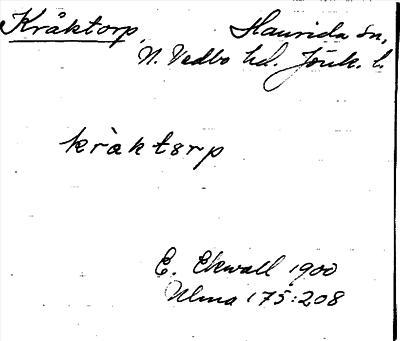 Kråktorp, Haurida sn,
N. Vedbo hd. Jönk. l.
kràktsrp
E. Ekwall 1900
Ulma 175:208